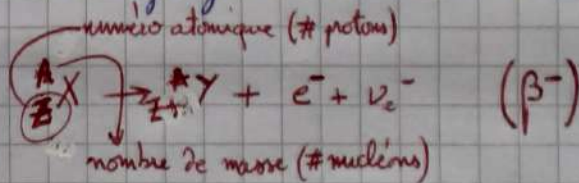 numéro atomique (# protons)
A A
Z X → Z+1 Y + e⁻ + νe⁻ (β⁻)
nombre de masse (# nucléons)